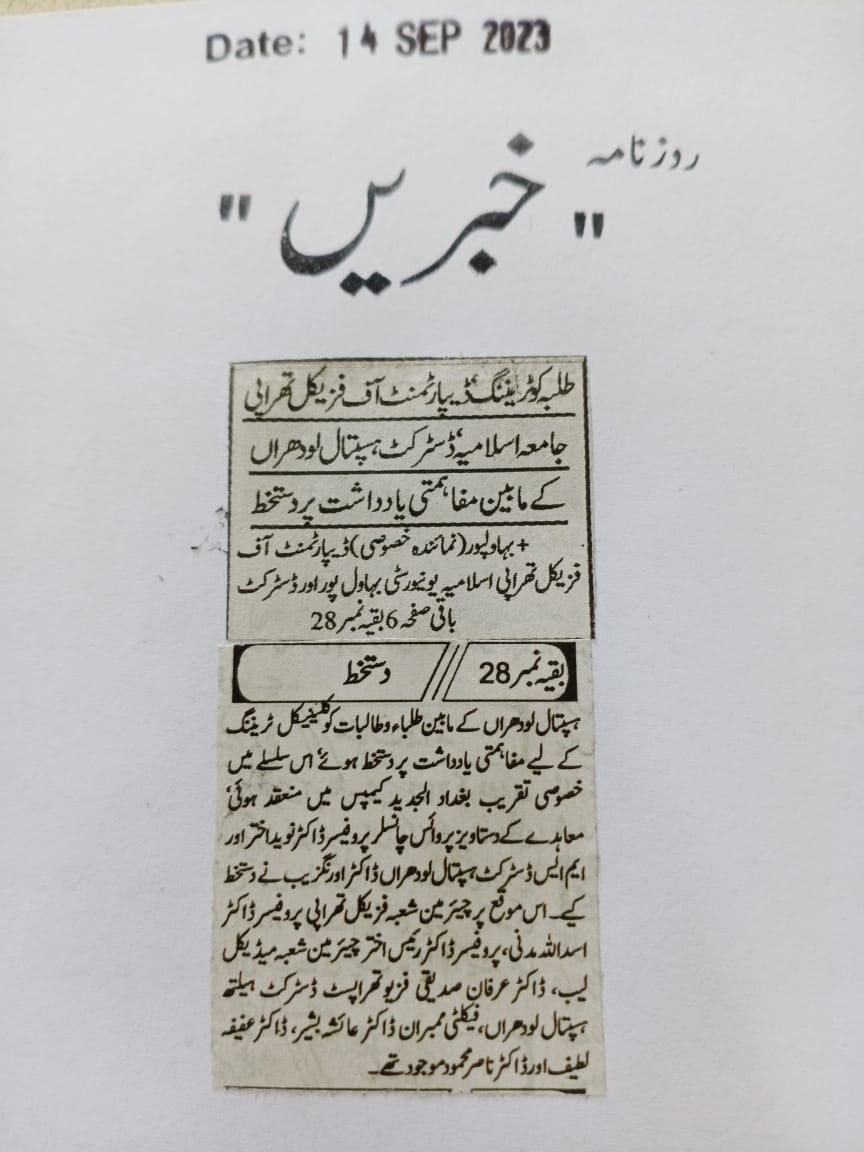 Date: 14 SEP 2023
روزنامہ
"خبریں"
طلبہ کو ٹریننگ، ڈیپارٹمنٹ آف فزیکل تھراپی
جامعہ اسلامیہ، ڈسٹرکٹ ہسپتال لودھراں
کے مابین مفاہمتی یادداشت پر دستخط
+ بہاولپور (نمائندہ خصوصی) ڈیپارٹمنٹ آف
فزیکل تھراپی اسلامیہ یونیورسٹی بہاول پور اور ڈسٹرکٹ
باقی صفحہ 6 بقیہ نمبر 28
بقیہ نمبر 28 // دستخط
ہسپتال لودھراں کے مابین طلباء و طالبات کو کلینیکل ٹریننگ
کے لیے مفاہمتی یادداشت پر دستخط ہوئے، اس سلسلے میں
خصوصی تقریب بغداد الجدید کیمپس میں منعقد ہوئی،
معاہدے کے دستاویز پر وائس چانسلر پروفیسر ڈاکٹر نوید اختر اور
ایم ایس ڈسٹرکٹ ہسپتال لودھراں ڈاکٹر اورنگزیب نے دستخط
کیے۔ اس موقع پر چیئرمین شعبہ فزیکل تھراپی پروفیسر ڈاکٹر
اسد اللہ مدنی، پروفیسر ڈاکٹر رئیس اختر چیئرمین شعبہ میڈیکل
لیب، ڈاکٹر عرفان صدیقی فزیوتھراپسٹ ڈسٹرکٹ ہیلتھ
ہسپتال لودھراں، فیکلٹی ممبران ڈاکٹر عائشہ بشیر، ڈاکٹر عفیفہ
لطیف اور ڈاکٹر ناصر محمود موجود تھے۔